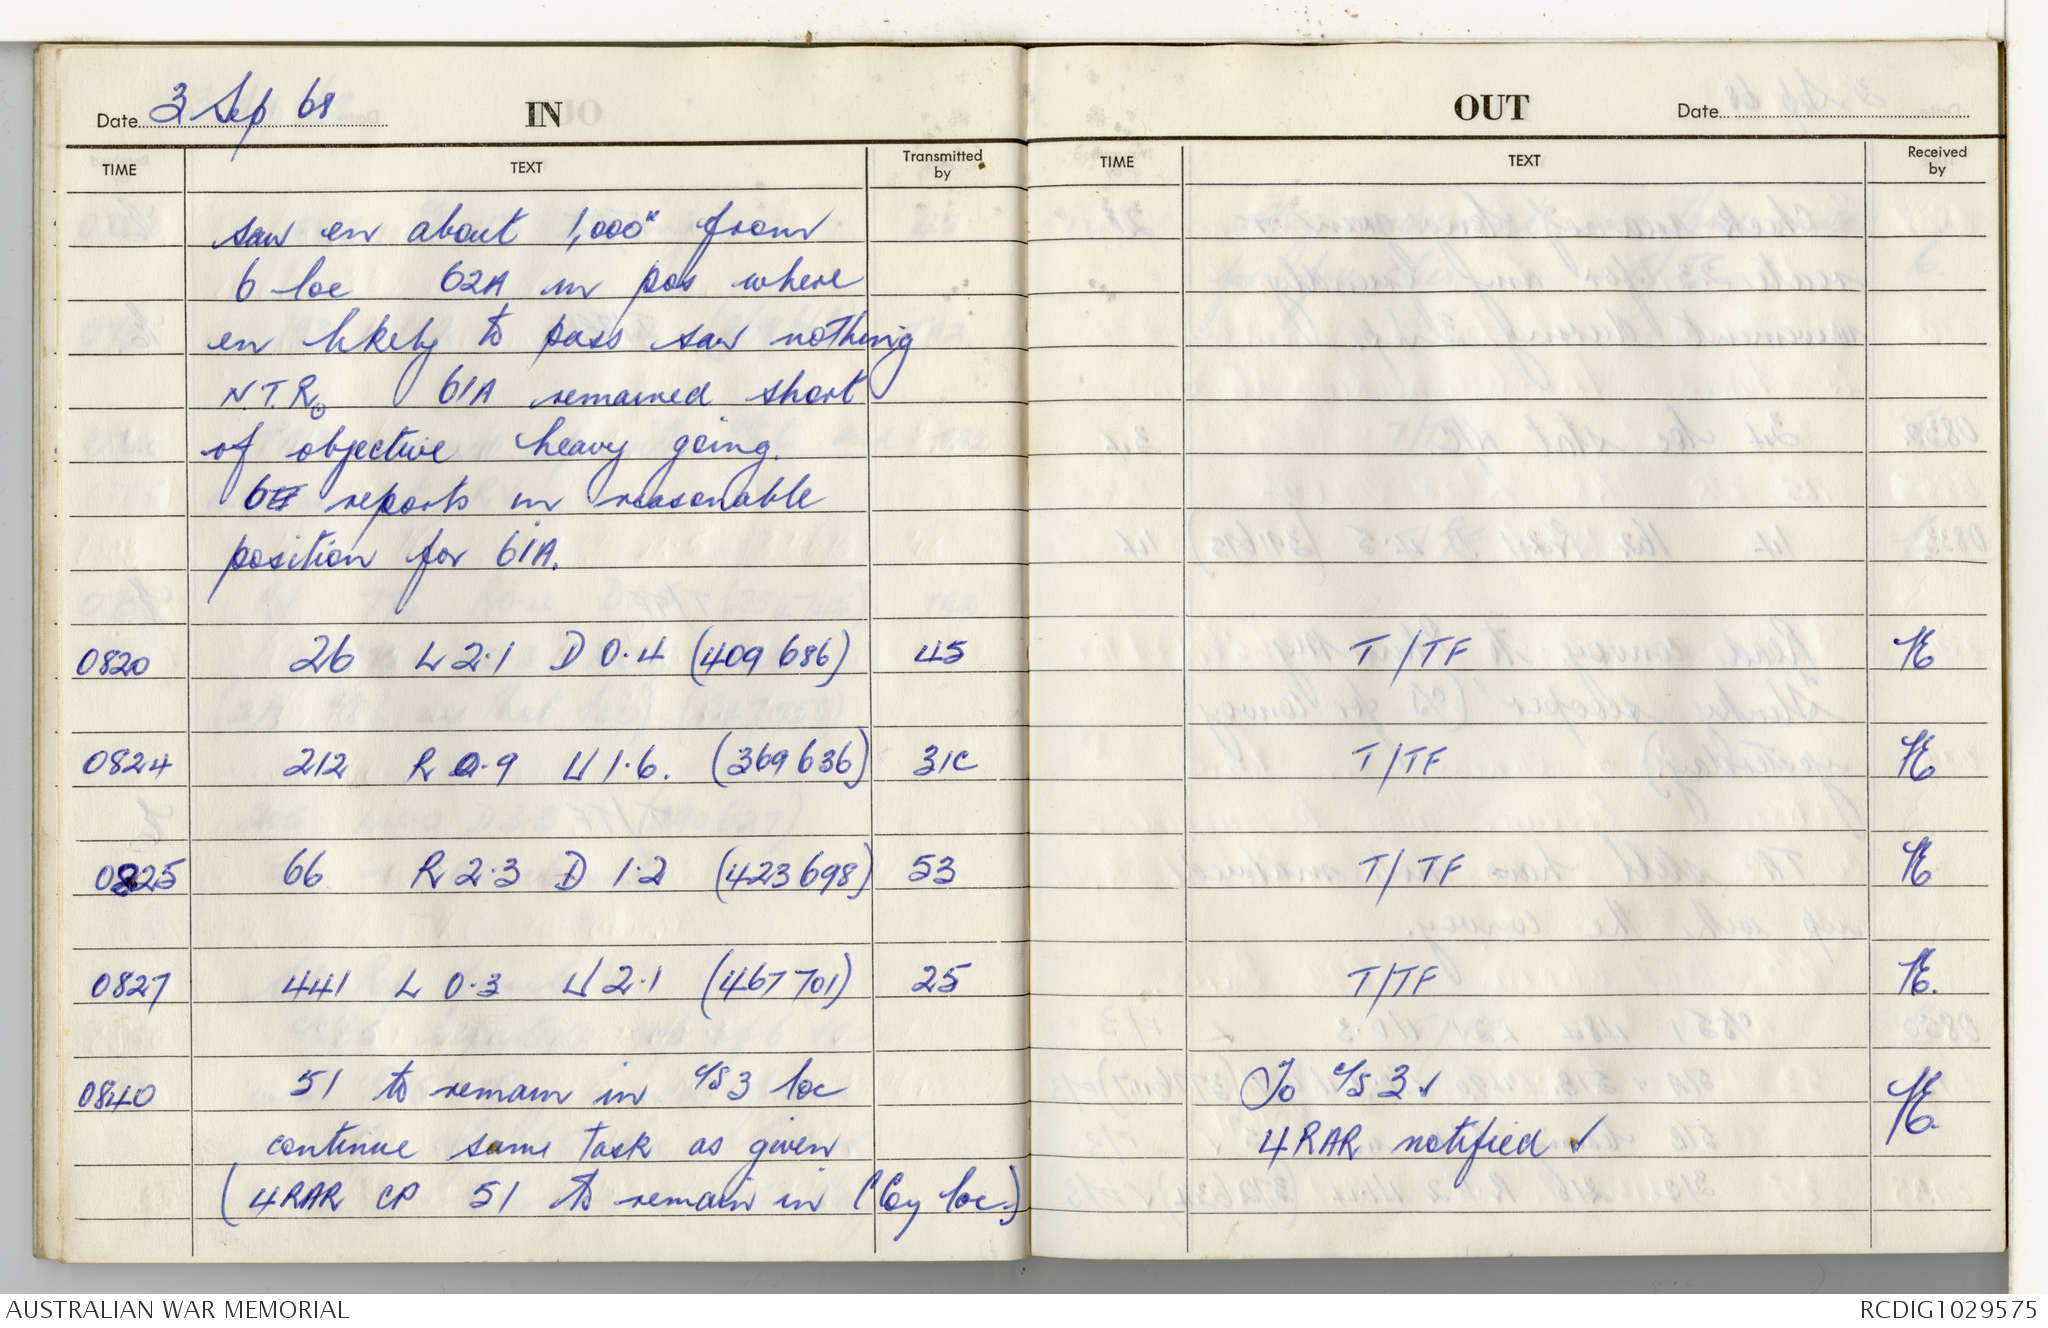 Date 3 Sep 68 IN
TIME TEXT Transmitted by
saw en about 1,000x from
6 loc 62A in pos where
en likely to pass saw nothing
N.T.R. 61A remained short
of objective heavy going.
reports in reasonable
position for 61A.
0820 26 L 2.1 D 0.4 (409 686) 45
0824 212 R 0.9 U 1.6. (369 636) 31C
0825 66 R 2.3 D 1.2 (423 698) 53
0827 441 L 0.3 U 2.1 (467 701) 25
0840 51 to remain in c/s 3 loc
continue same task as given
(4RAR CP 51 to remain in C Coy loc.)
OUT Date
TIME TEXT Received by
T/TF
T/TF
T/TF
T/TF
To c/s 3 ✓
4 RAR notified ✓
AUSTRALIAN WAR MEMORIAL RCDIG1029575